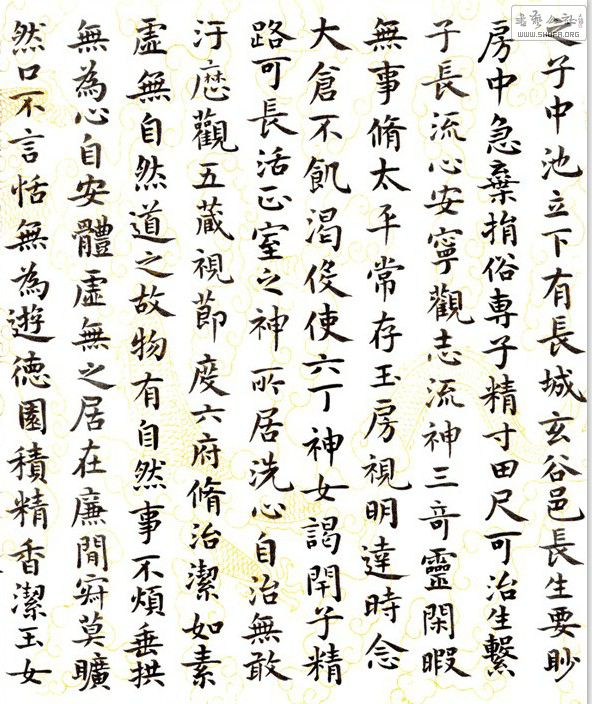 之子中池立下有長城玄谷邑長生要眇
房中急棄捐俗專子精寸田尺可治生繫
子長流心安寧觀志流神三奇靈閑暇
無事脩太平常存玉房視明達時念
大倉不飢渴役使六丁神女謁閉子精
路可長活正室之神所居洗心自治無敢
汙歷觀五藏視節度六府脩治潔如素
虛無自然道之故物有自然事不煩垂拱
無為心自安體虛無之居在廉間寂莫曠
然口不言恬無為遊德園積精香潔玉女
WWW.SHUFA.ORG